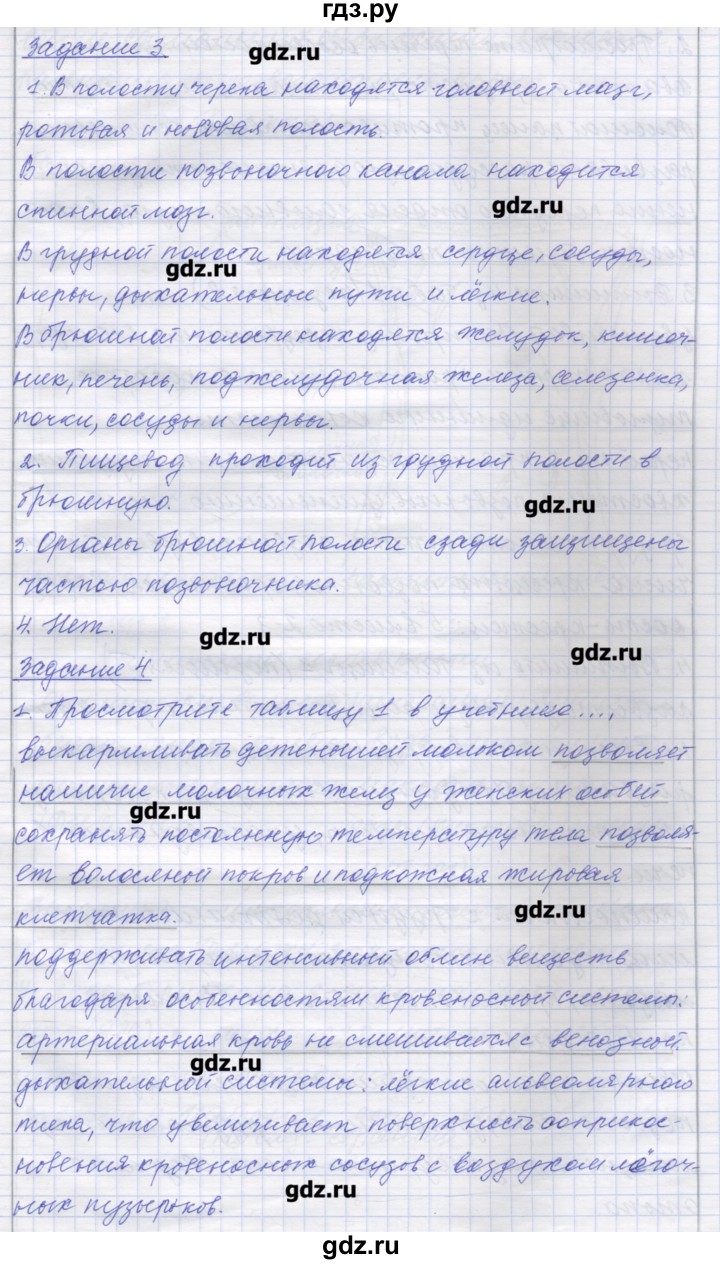 гдз.ру
Задание 3
gdz.ru
1. В полости черепа находятся головной мозг,
ротовая и носовая полость.
В полости позвоночного канала находится
спинной мозг.
gdz.ru
В грудной полости находятся сердце, сосуды,
gdz.ru
нервы, дыхательные пути и лёгкие.
В брюшной полости находятся желудок, кишеч-
ник, печень, поджелудочная железа, селезенка,
почки, сосуды и нервы.
2. Пищевод проходит из грудной полости в
брюшную.
gdz.ru
3. Органы брюшной полости сзади защищены
частью позвоночника.
4. Нет.
gdz.ru
gdz.ru
Задание 4
1. Просмотрите таблицу 1 в учебнике...,
выскармливать детенышей молоком позволяет
наличие молочных желез у женских особей
gdz.ru
сохранять постоянную температуру тела позволя-
ет волосяной покров и подкожная жировая
клетчатка.
gdz.ru
поддерживать интенсивный обмен веществ
благодаря особенностям кровеносной системы:
артериальная кровь не смешивается с венозной
gdz.ru
дыхательной системы: лёгкие альвеолярного
типа, что увеличивает поверхность соприкос-
новения кровеносных сосудов с воздухом лёгоч-
gdz.ru
ных пузырьков.
gdz.ru